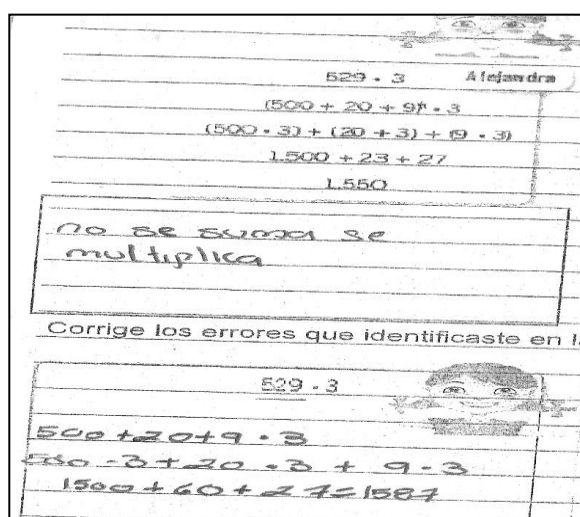 529 · 3 Alejandra
(500 + 20 + 9) · 3
(500 · 3) + (20 + 3) + (9 · 3)
1.500 + 23 + 27
1.550
no se suma se
multiplica
Corrige los errores que identificaste en l
529 · 3
500 + 20 + 9 · 3
500 · 3 + 20 · 3 + 9 · 3
1500 + 60 + 27 = 1587